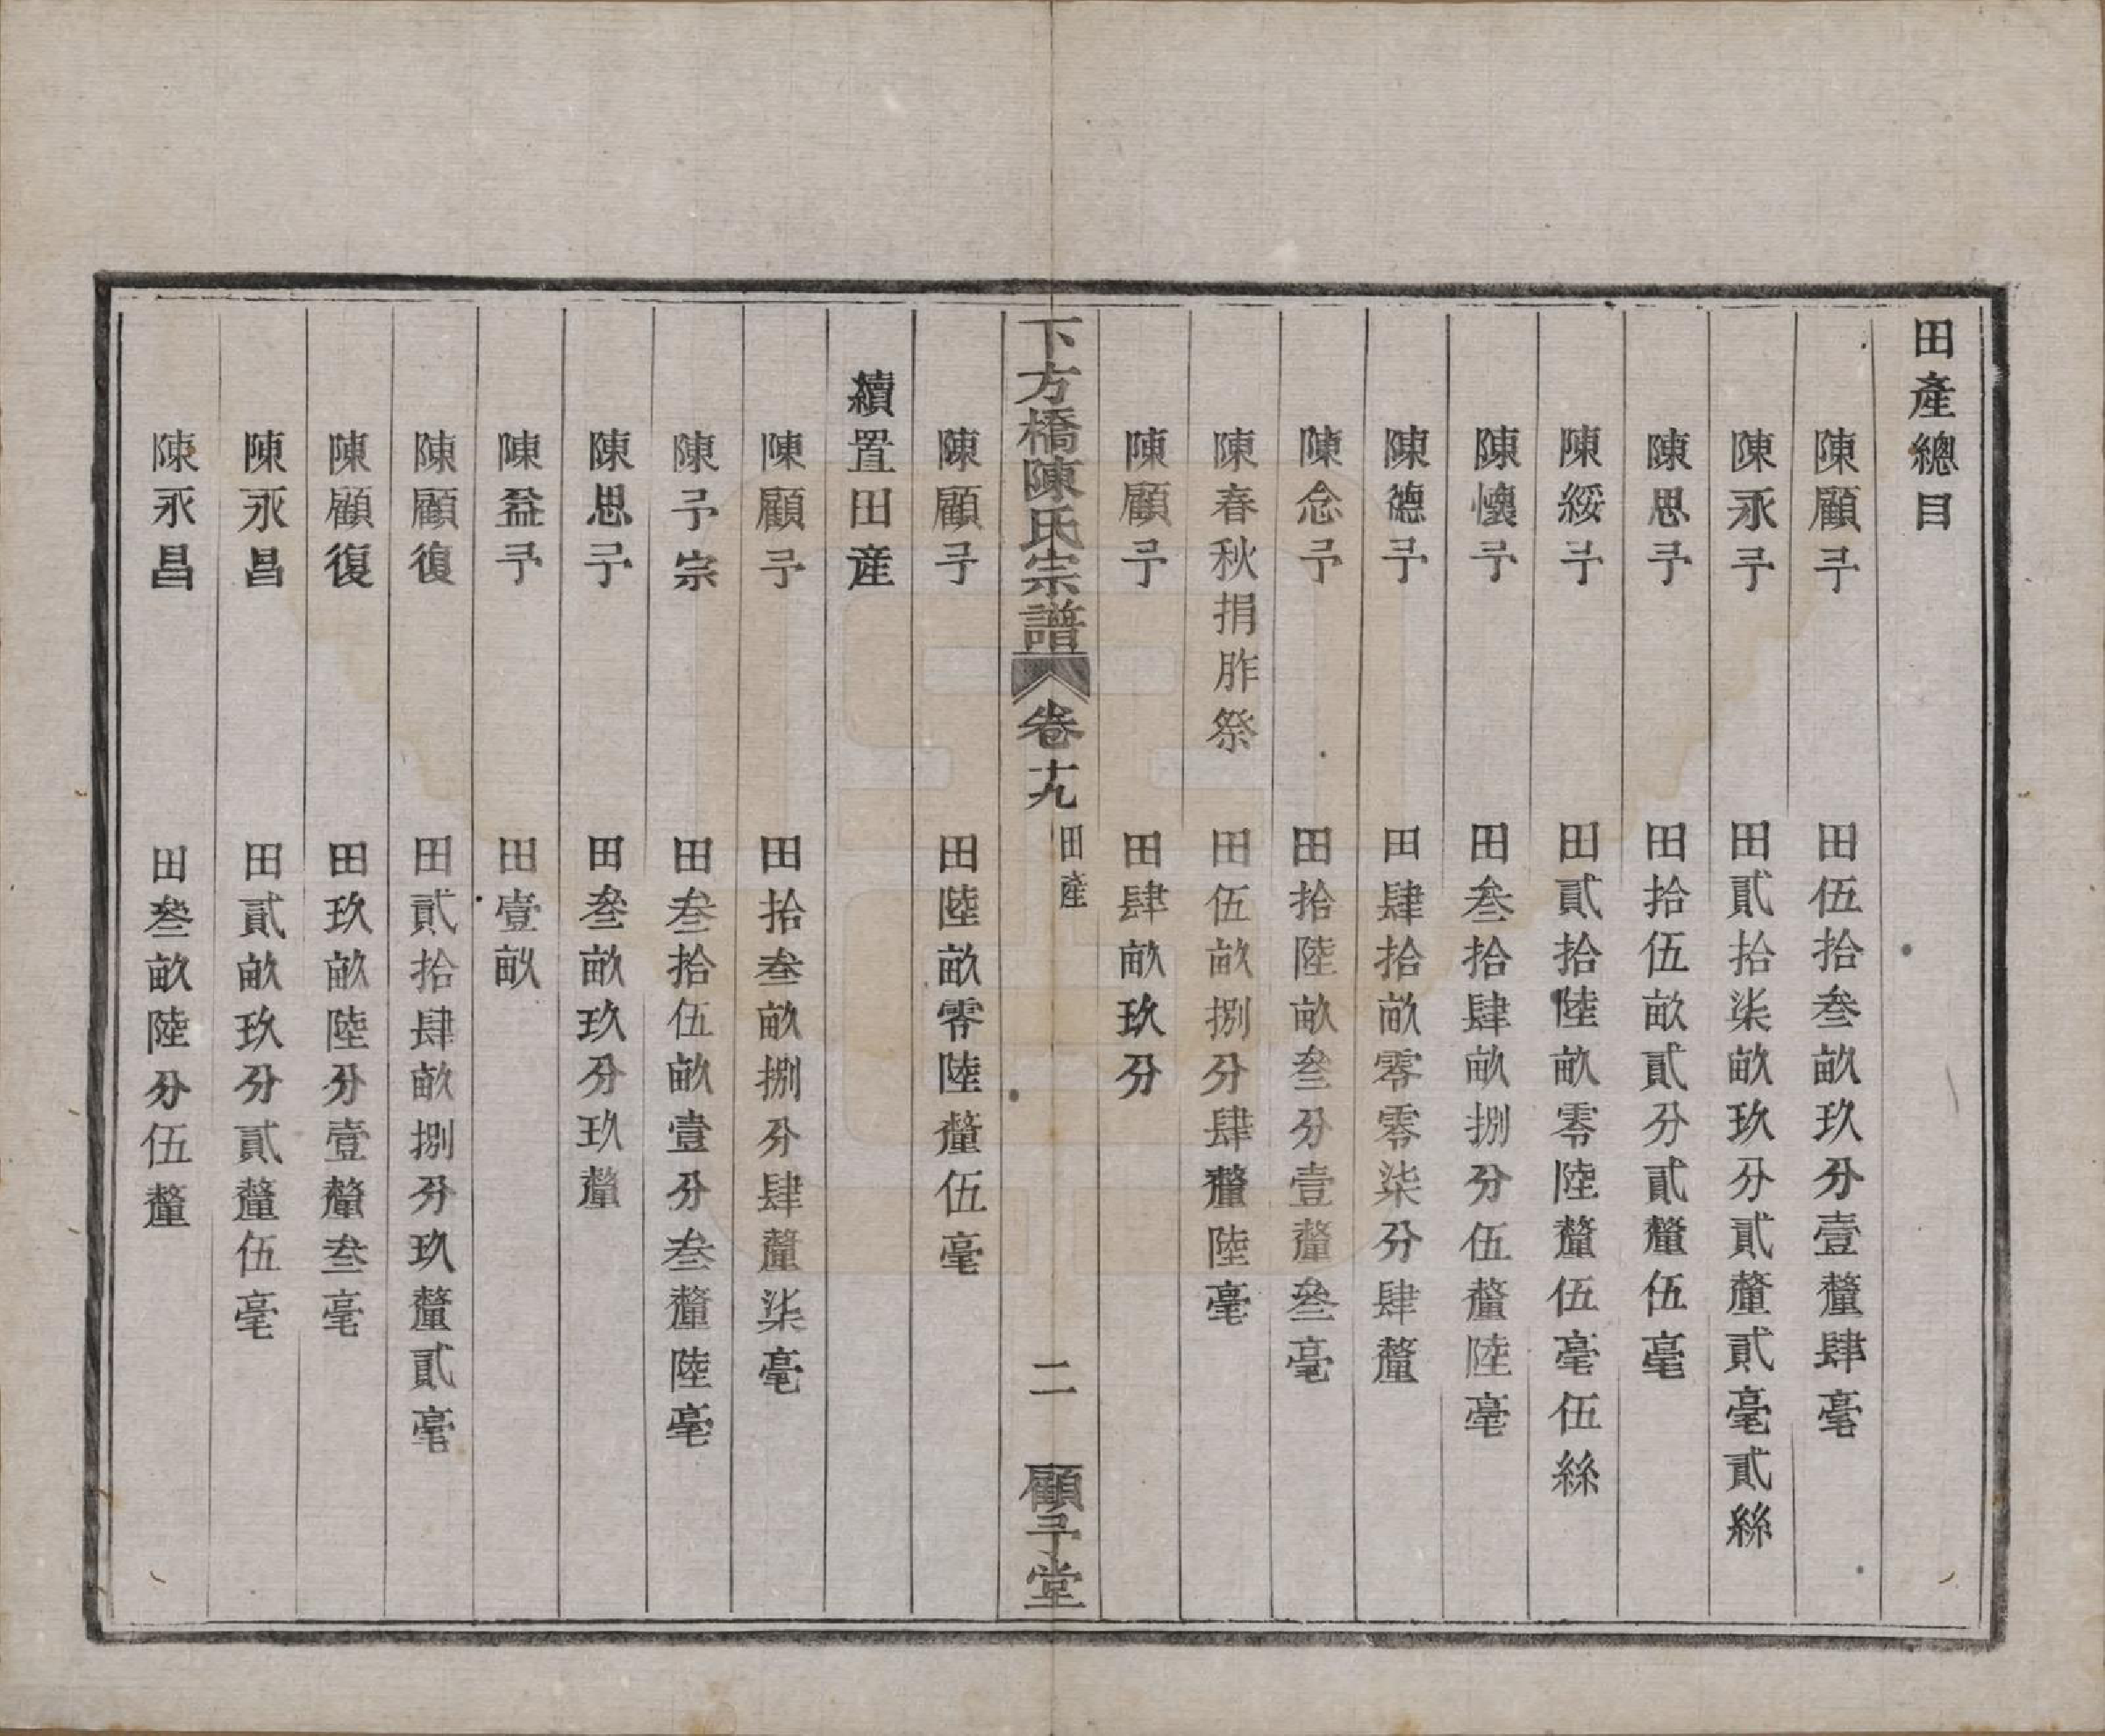 田產總目
陳顧予 田伍拾叁畝玖分壹釐肆毫
陳永予 田貳拾柒畝玖分貳釐貳毫貳絲
陳思予 田拾伍畝貳分貳釐伍毫
陳綏予 田貳拾陸畝零陸釐伍毫伍絲
陳懷予 田叁拾肆畝捌分伍釐陸毫
陳德予 田肆拾畝零零柒分肆釐
陳念予 田拾陸畝叁分壹釐叁毫
陳春秋捐胙祭 田伍畝捌分肆釐陸毫
陳顧予 田肆畝玖分
下方橋陳氏宗譜 卷十九 田產 二 顧予堂
陳顧予 田陸畝零陸釐伍毫
續置田產
陳顧予 田拾叁畝捌分肆釐柒毫
陳予宗 田叁拾伍畝壹分叁釐陸毫
陳思予 田叁畝玖分玖釐
陳益予 田壹畝
陳顧復 田貳拾肆畝捌分玖釐貳毫
陳顧復 田玖畝陸分壹釐叁毫
陳永昌 田貳畝玖分貳釐伍毫
陳永昌 田叁畝陸分伍釐